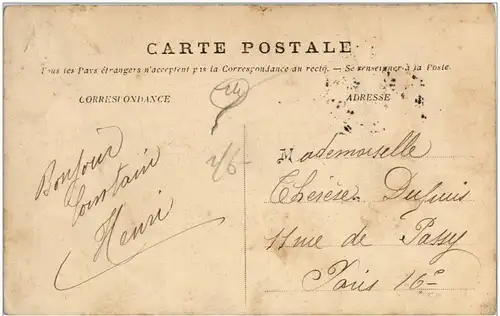 CARTE POSTALE
Tous les Pays étrangers n'acceptent pas la Correspondance au recto. — Se renseigner à la Poste.
CORRESPONDANCE
ADRESSE
Bonjour
Henri
2/6-
Mademoiselle
Thérèse Dupuis
11 rue de Passy
Paris 16e